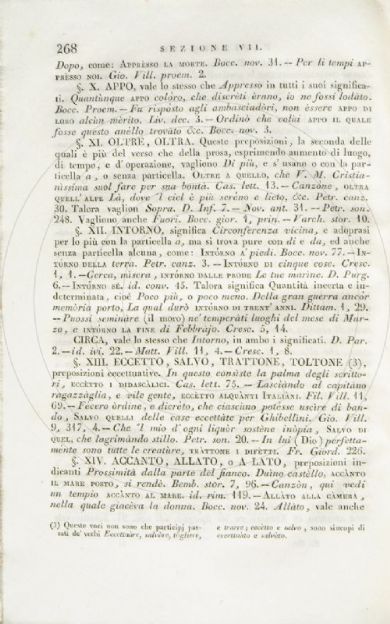 268 SEZIONE VII.
Dopo, come: APPRÈSSO LA MORTE. Bocc. nov. 31. — Per li tempi AP-
PRÈSSO NOI. Gio. Vill. proem. 2.
§. X. APPO, vale lo stesso che Appresso in tutti i suoi significa-
ti. Quantùnque APPO colòro, che discreti èrano, io ne fossi lodàto.
Bocc. Proem. — Fu risposto agli ambasciadòri, non èssere APPO DI
LORO alcùn mèrito. Liv. dec. 3. — Ordinò che colùi APPO IL QUALE
fosse questo anèllo trovàto &c. Bocc. nov. 3.
§. XI. OLTRE, OLTRA. Queste preposizioni, la seconda delle
quali è più del verso che della prosa, esprimendo aumento di luogo,
di tempo, e d'operazione, vagliono Di più, e s'usano o con la par-
ticella a, o senza particella. OLTRE A QUELLO, che V. M. Cristia-
nìssima suol fare per sua bontà. Cas. lett. 13. — Canzòne, OLTRA
QUELL'ALPE Là, dove 'l ciel è più serèno e lieto, &c. Petr. canz.
30. Talora vagliono Sopra. D. Inf. 7. — Nov. ant. 31. — Petr. son.
248. Vagliono anche Fuori. Bocc. gior. 1, prin. — Varch. stor. 10.
§. XII. INTORNO, significa Circonferenza vicina, e adoprasi
per lo più con la particella a, ma si trova pure con di e da, ed anche
senza particella alcuna, come: INTÓRNO A' piedi. Bocc. nov. 77. — IN-
TÓRNO DELLA terra. Petr. canz. 3. — INTÓRNO DI cinque cose. Cresc.
1, 1. — Cerca, mìsera, INTÓRNO DALLE PRODE Le tue marine. D. Purg.
6. — INTÓRNO SÈ. id. conv. 45. Talora significa Quantità incerta e in-
determinata, cioè Poco più, o poco meno. Della gran guerra ancòr
memòria porto, La qual durò INTÓRNO DI TRENT'ANNI. Dittam. 1, 29.
— Puossi seminàre INTÓRNO ALLA metà del mese di Mar-
zo, e INTÓRNO LA FINE di Febbràjo. Cresc. 5, 14.
CIRCA, vale lo stesso che Intorno, in ambo i significati. D. Par.
2. — id. ivi. 22. — Matt. Vill. 11, 4. — Cresc. 1, 8.
§. XIII. ECCETTO, SALVO, TRATTONE, TOLTONE (3),
preposizioni eccettuative. In questo consiste la palma degli scritto-
ri, ECCÈTTO I DIDASCÀLICI. Cas. lett. 75. — Lasciàndo al capitano
ragazzàglia, e vile gente, ECCÈTTO ALQUÀNTI ITALIANI. Fil. Vill. 11,
69. — Fècero òrdine, e dicrèto, che ciascùno potèsse uscire di ban-
do, SALVO QUELLI delle case eccettàte per Ghibellìni. Gio. Vill.
9, 317, 4. — Che 'l mio d'ogni liquòr sostène inòpia, SALVO DI
QUEL, che lagrimàndo stillo. Petr. son. 20. — In lui (Dio) perfetta-
mente sono tutte le creatùre, TRATTONE I DIFÈTTI. Fr. Giord. 226.
§. XIV. ACCANTO, ALLATO, o A LATO, preposizioni in-
dicanti Prossimità dalla parte del fianco. Duìno castèllo, ACCÀNTO
IL MARE POSTO, si rendè. Bemb. stor. 7, 96. — Canzòn, qui vedi
un tempio ACCÀNTO AL MARE. id. rim. 119. — ALLÀTO ALLA CÀMERA,
nella quale giacèva la donna. Bocc. nov. 24. Allàto, vale anche
(3) Queste voci non sono che participj pas-
sati de' verbi Eccettuàre, salvàre, tògliere,
e trarre; eccètto e salvo, sono sìncopi di
eccettuàto e salvàto.